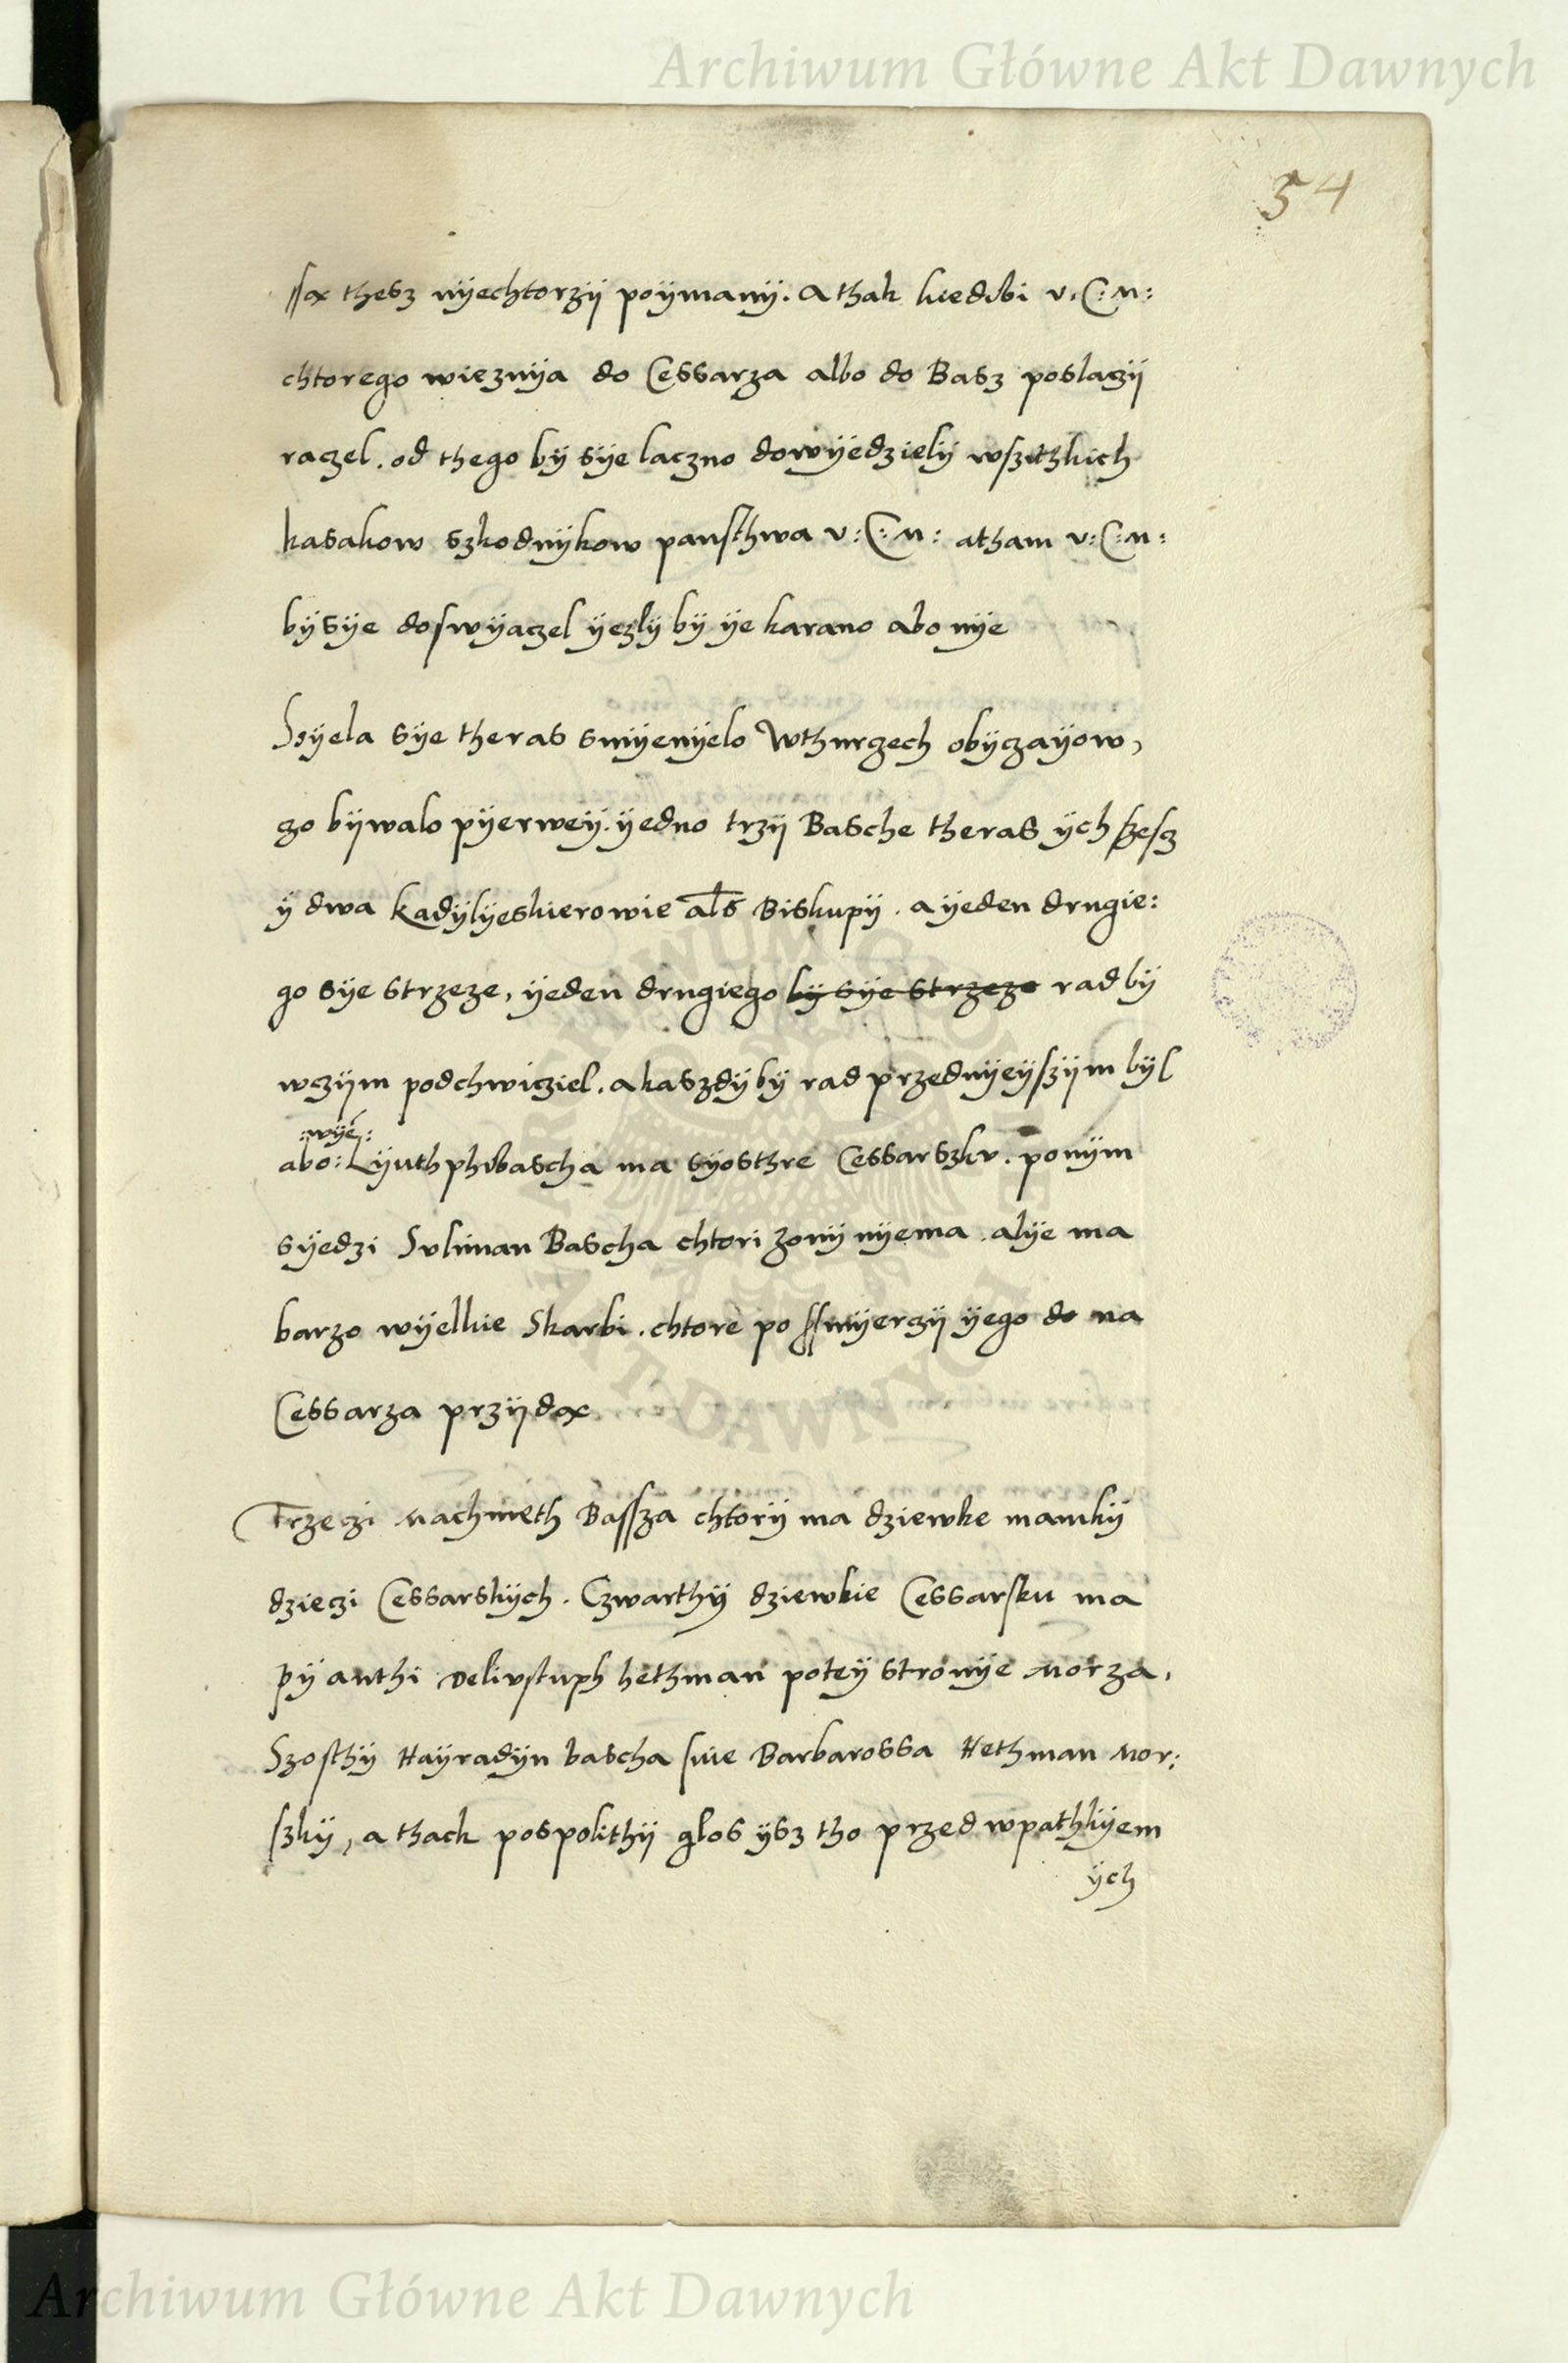 Archiwum Główne Akt Dawnych
54
ſſą thesz nÿechtorzÿ poÿmanÿ. A thak kiedibi v: C: M:
chtorego wieznÿa do Cessarza albo do Basz poslaczÿ
raczel. od thego bÿ sÿe laczno dowÿedzielÿ wſzitzkich
kasakow szkodnÿkow panſthwa v: C: M: atham v: C: M:
bÿ sÿe doſwÿaczel ÿezlÿ bÿ ÿe karano abo nÿe
Ssÿela sÿe theras smÿenÿelo Wthurczech obÿczaÿow,
zo bÿwalo pÿerweÿ. ÿedno trzÿ Basche theras ÿch ſzeſz
ÿ dwa Kadÿlÿeskierowie als Biskupÿ. a ÿeden drugie:
go sÿe strzeze, ÿeden drugiego bÿ sÿe strzeze rad bÿ
wczÿm podchwicziel. a kaszdÿ bÿ rad przednÿeÿſzÿm bÿl
:wÿe:
abo: Lÿuth phibascha ma sÿosthre Cessarszkv. ponÿm
sÿedzi Svliman Bascha chtori zonÿ nÿema. alÿe ma
barzo wÿelkie Skarbi. chtore po ſſmÿerczÿ ÿego do na
Cessarza przÿdą
Trzeczi Machmeth Baſſza chtorÿ ma dziewke mamkÿ
dzieczi Cessarskÿch. Czwarthÿ dziewkie Cessarſku ma
Pÿanthi Delivstuph hethman poteÿ stronÿe Morza,
Szoſthÿ Haÿradÿn bascha ſiue Barbarossa Hethman Mor:
ſzkÿ, a thack pospolithÿ glos ÿsz tho przed wpathkÿem
ÿch
Archiwum Główne Akt Dawnych